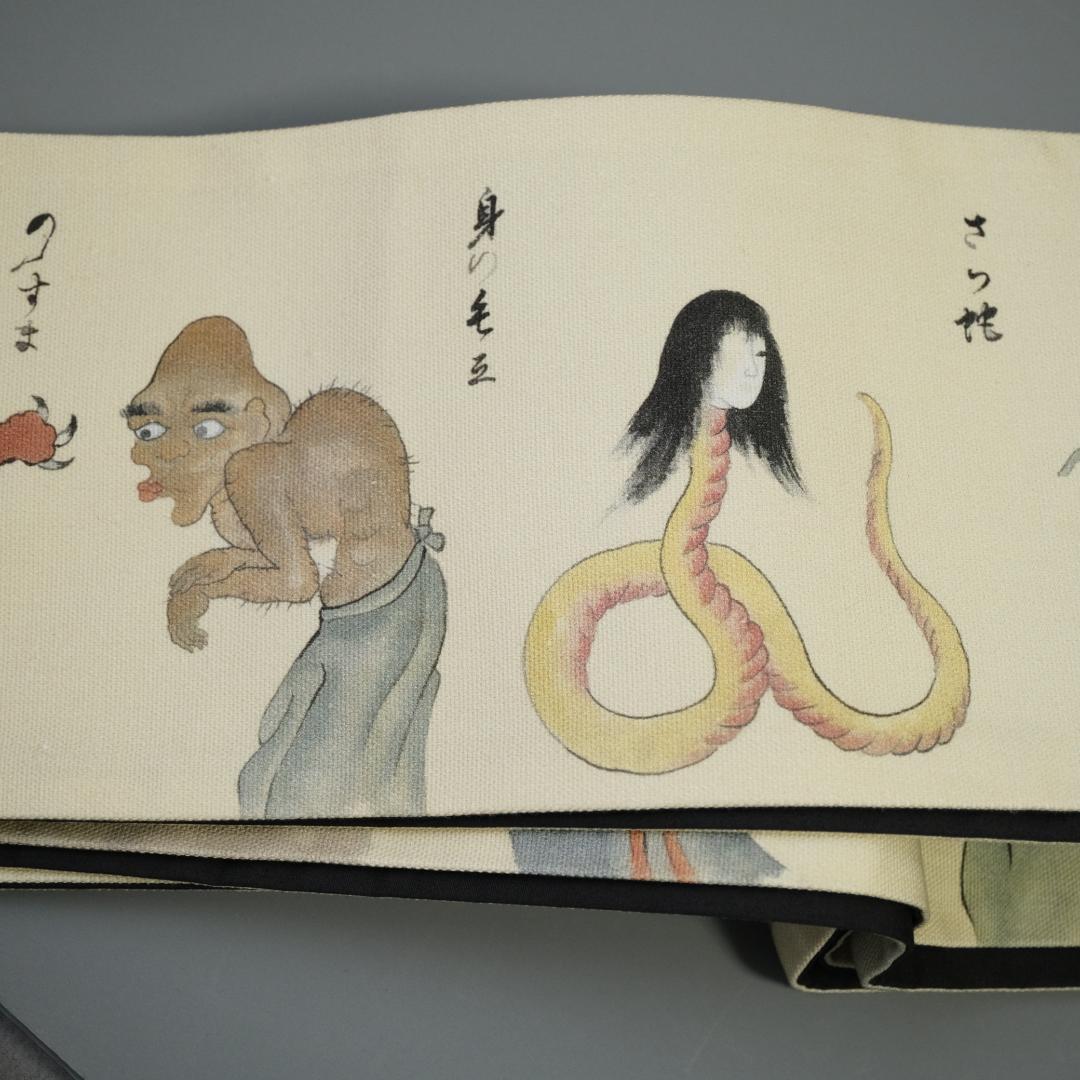 さら蛇
身の毛立
のすま